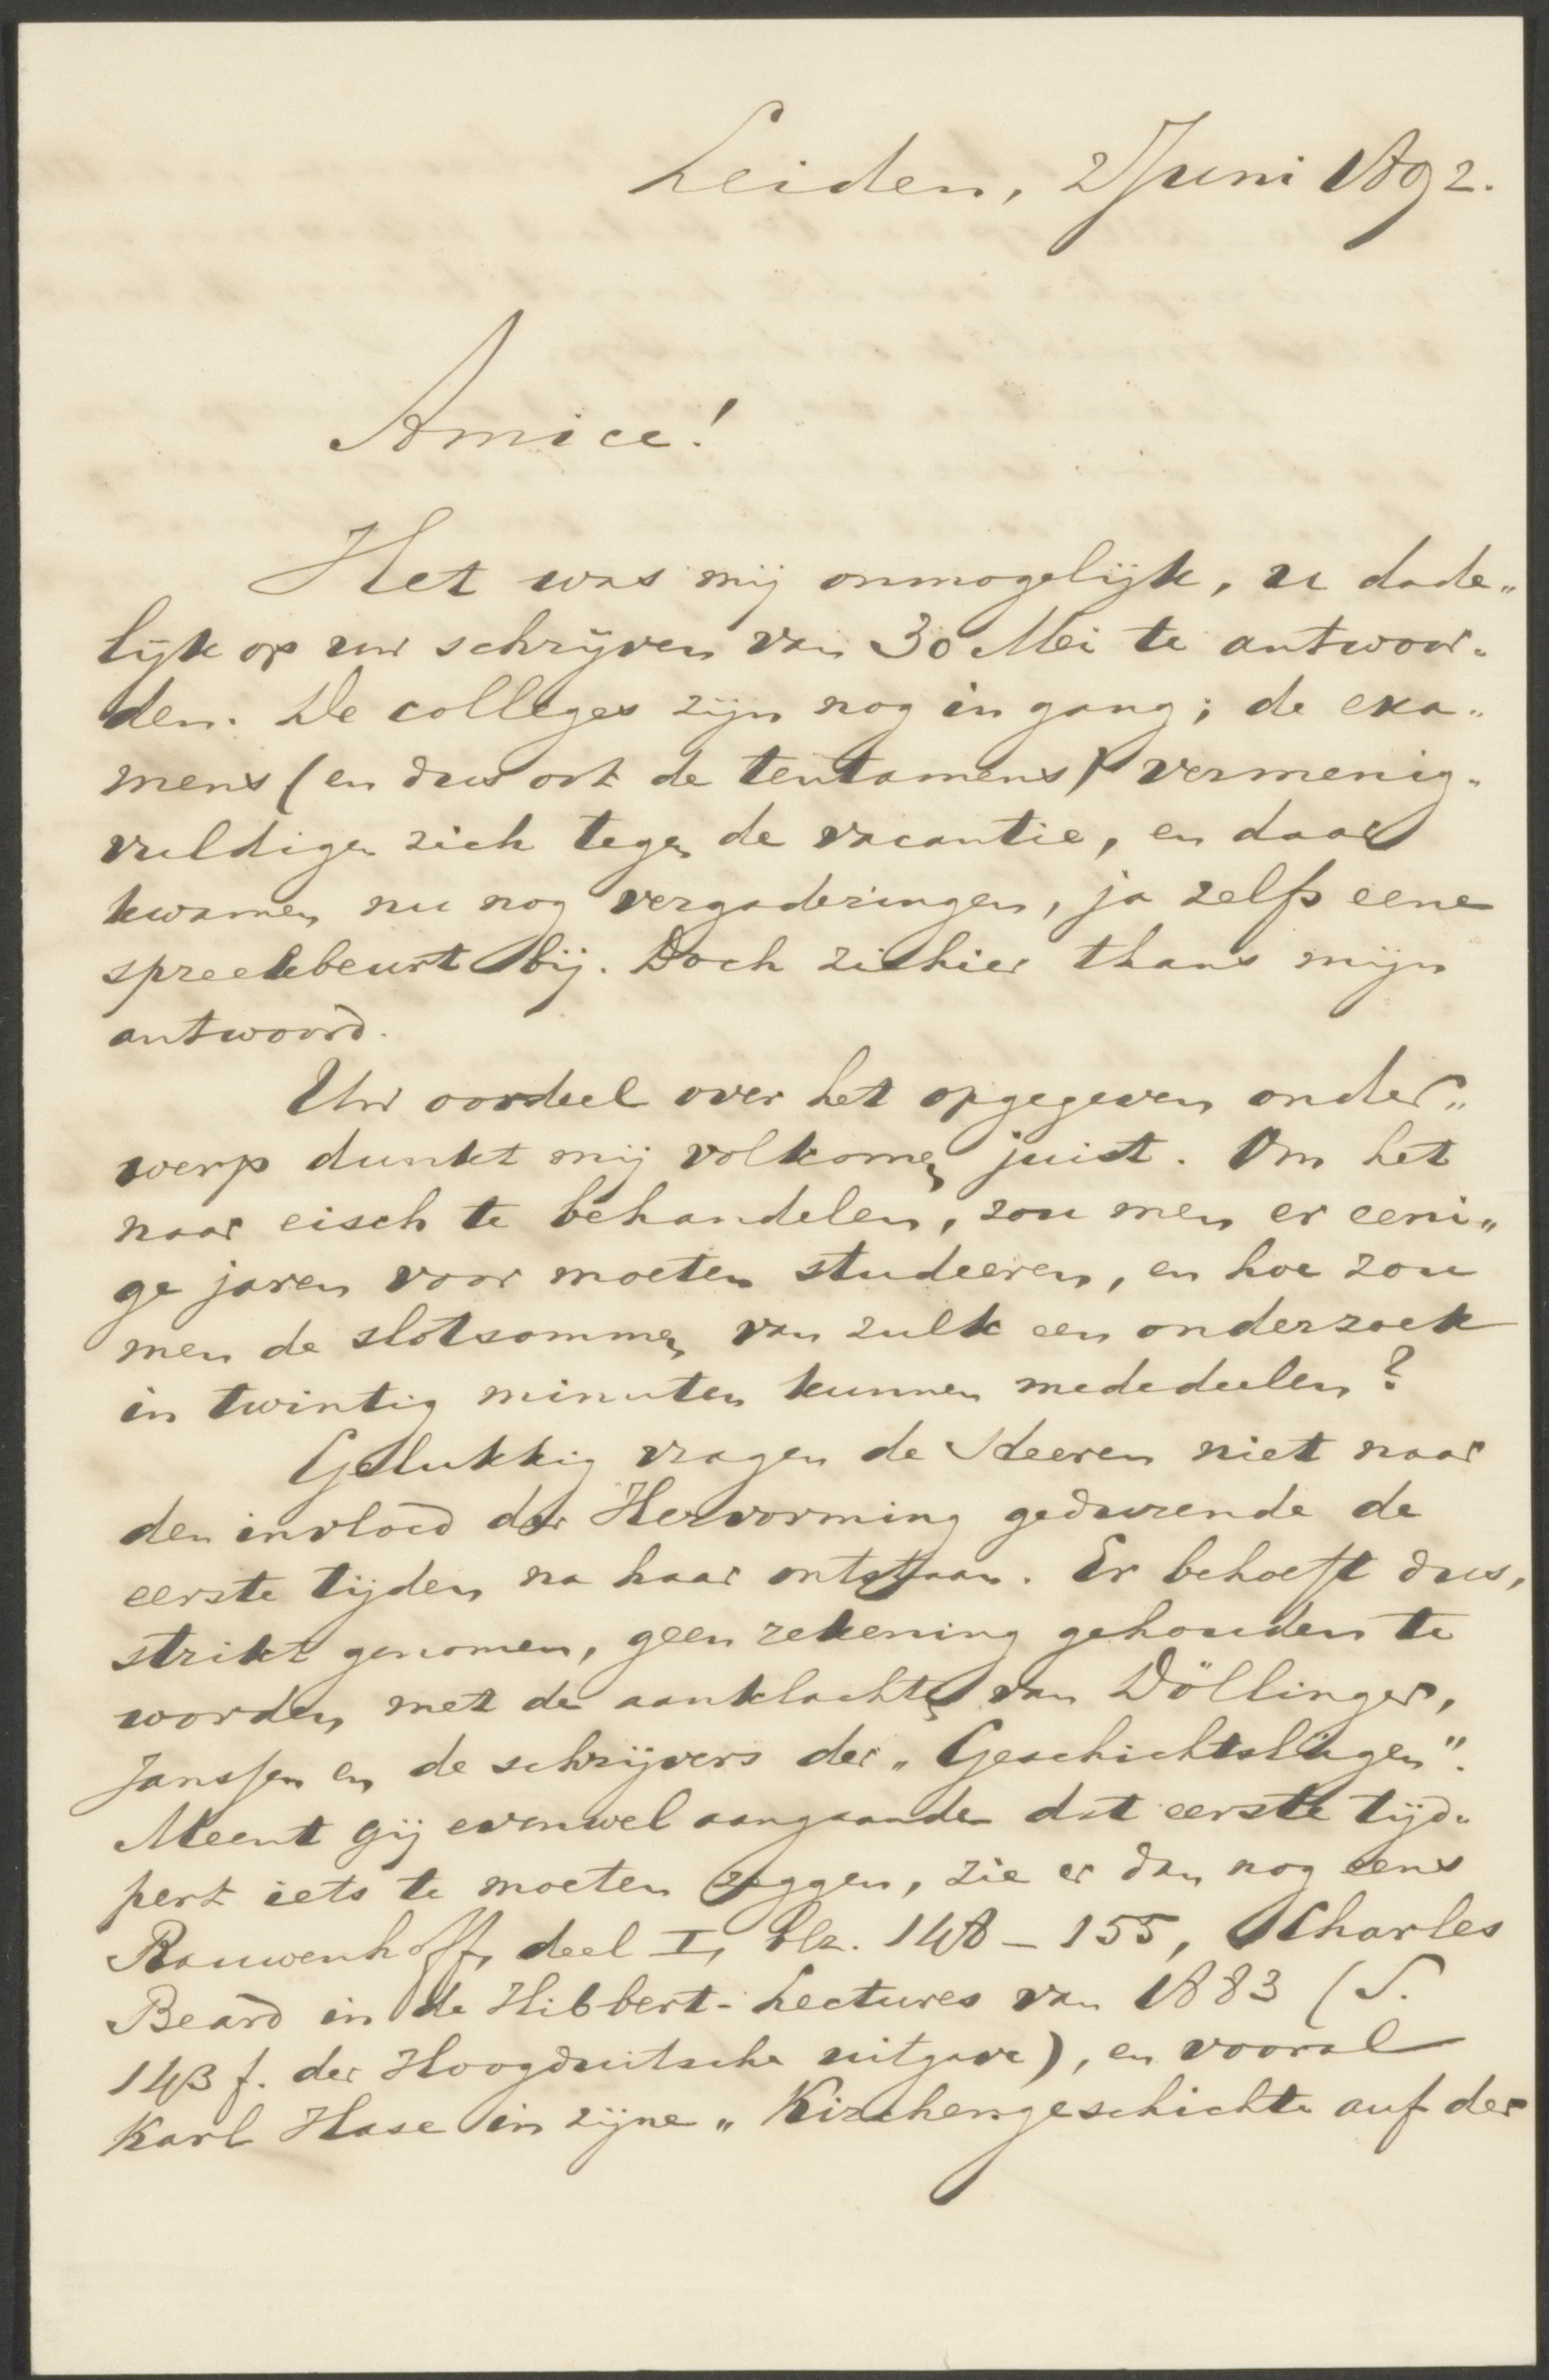 Leiden, 2 Juni 1892.
Amice!
Het was mij onmogelijk, u dade„
lijk op uw schrijven van 30 Mei te antwoor„
den. De colleges zijn nog in gang; de exa„
mens (en dus ook de tentamens) vermenig„
vuldigen zich tegen de vacantie, en daar
kwamen nu nog vergaderingen, ja zelfs eene
spreekbeurt bij. Doch ziehier thans mijn
antwoord.
Uw oordeel over het opgegeven onder„
werp dunkt mij volkomen juist. Om het
naar eisch te behandelen, zou men er eeni„
ge jaren voor moeten studeeren, en hoe zou
men de slotsommen van zulk een onderzoek
in twintig minuten kunnen mededeelen?
Gelukkig vragen de Heeren niet naar
den invloed der Hervorming gedurende de
eerste tijden na haar ontstaan. Er behoeft dus,
strikt genomen, geen rekening gehouden te
worden met de aanklachten van Döllinger,
Janssen en de schrijvers der „Geschichtslügen".
Meent gij evenwel aangaande dat eerste tijd„
perk iets te moeten zeggen, zie er dan nog eens
Rauwenhoff, deel I, blz. 148 – 155, Charles
Beard in de Hibbert-Lectures van 1883 (S.
143 f. der Hoogduitsche uitgave), en vooral
Karl Hase in zijne „Kirchengeschichte auf der